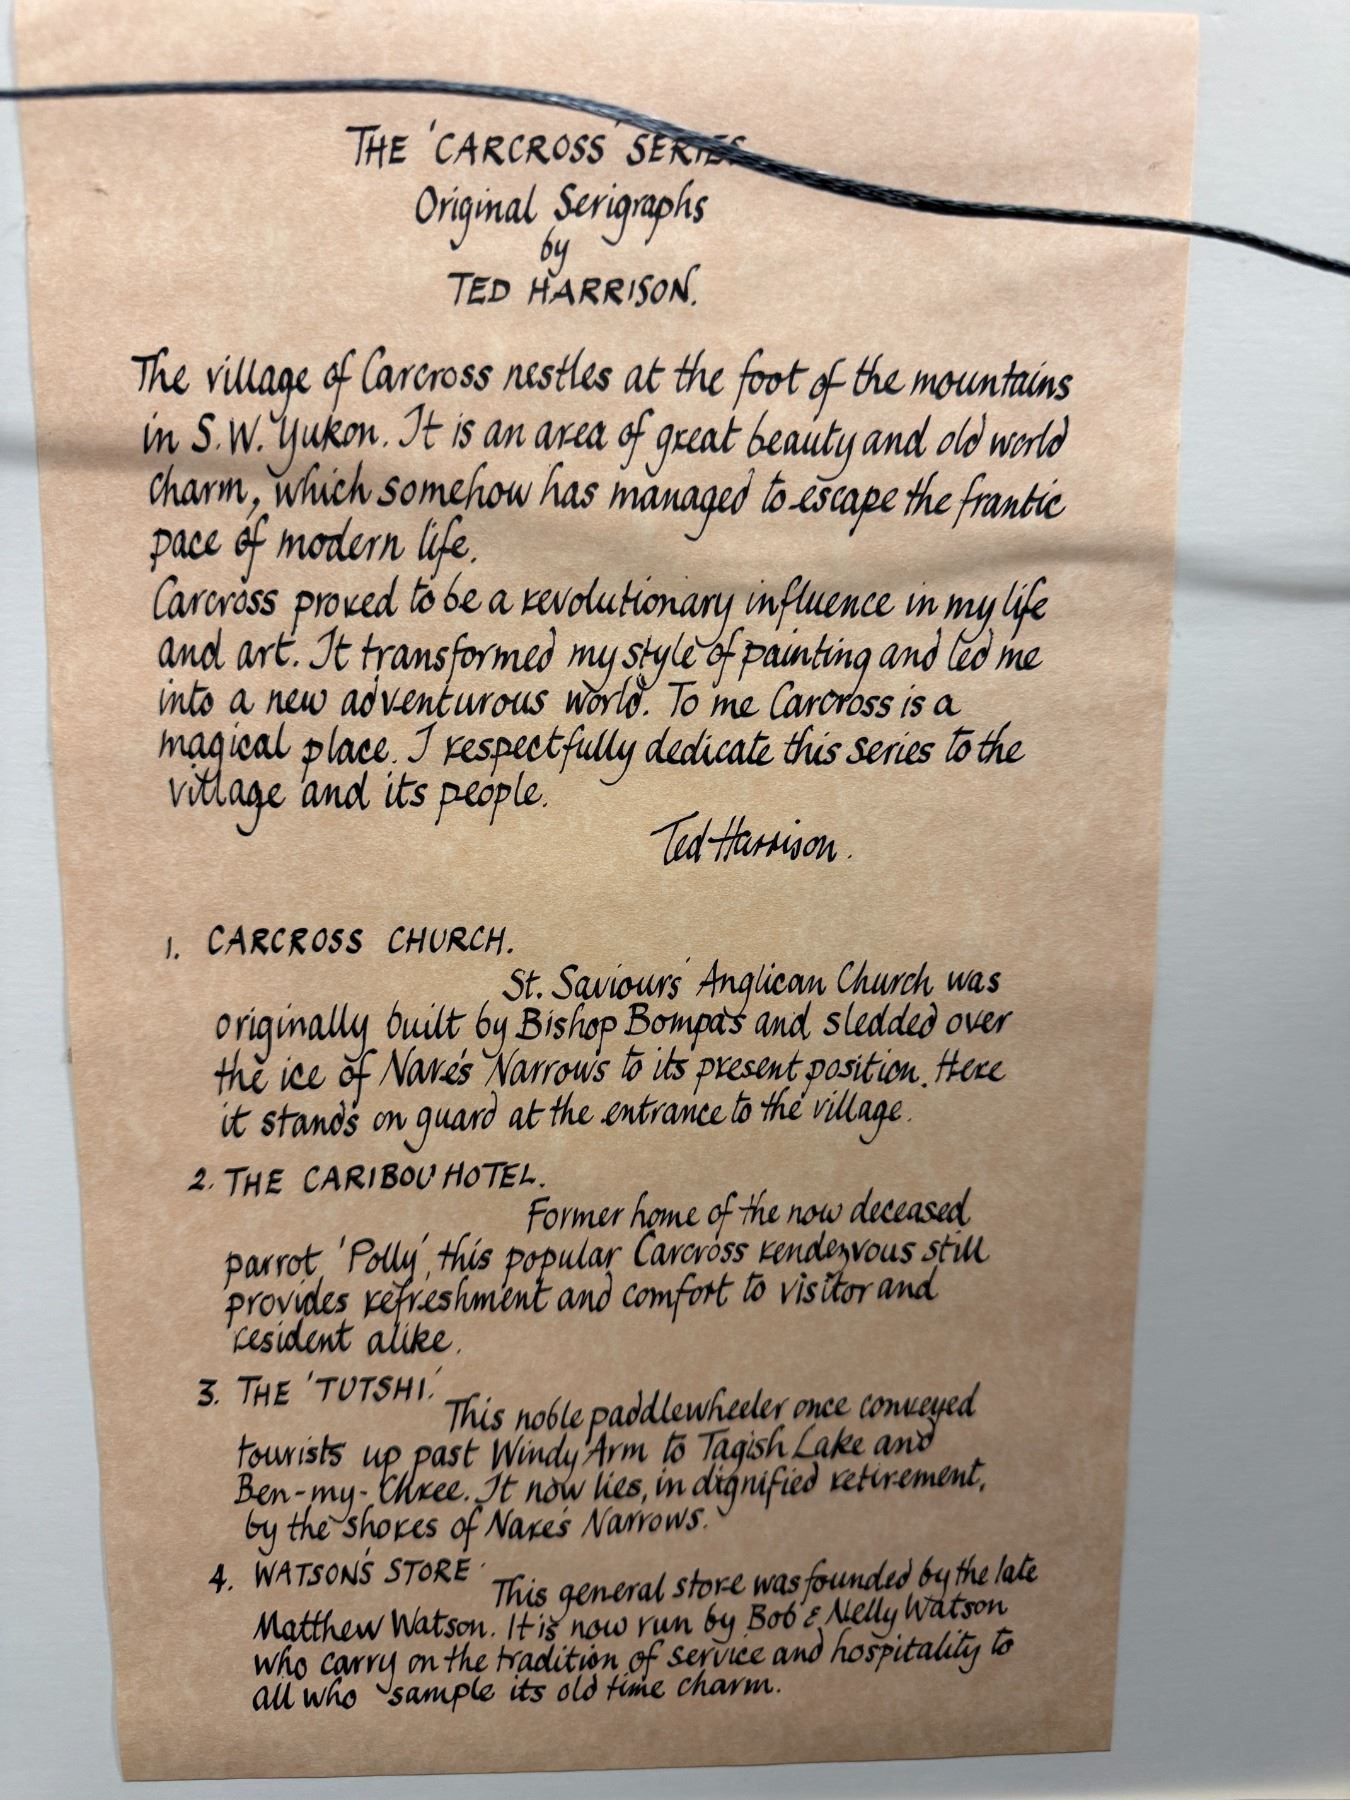 THE 'CARCROSS' SERIES
Original Serigraphs
by
TED HARRISON.
The village of Carcross nestles at the foot of the mountains
in S.W. Yukon. It is an area of great beauty and old world
charm, which somehow has managed to escape the frantic
pace of modern life.
Carcross proved to be a revolutionary influence in my life
and art. It transformed my style of painting and led me
into a new adventurous world. To me Carcross is a
magical place. I respectfully dedicate this series to the
village and its people.
Ted Harrison.
1. CARCROSS CHURCH.
St. Saviours' Anglican Church was
originally built by Bishop Bompas and sledded over
the ice of Nares Narrows to its present position. Here
it stands on guard at the entrance to the village.
2. THE CARIBOU HOTEL.
Former home of the now deceased
parrot 'Polly', this popular Carcross rendezvous still
provides refreshment and comfort to visitor and
resident alike.
3. THE 'TUTSHI.'
This noble paddlewheeler once conveyed
tourists up past Windy Arm to Tagish Lake and
Ben-my-Chree. It now lies, in dignified retirement,
by the shores of Nares Narrows.
4. WATSON'S STORE
This general store was founded by the late
Matthew Watson. It is now run by Bob & Nelly Watson
who carry on the tradition of service and hospitality to
all who sample its old time charm.